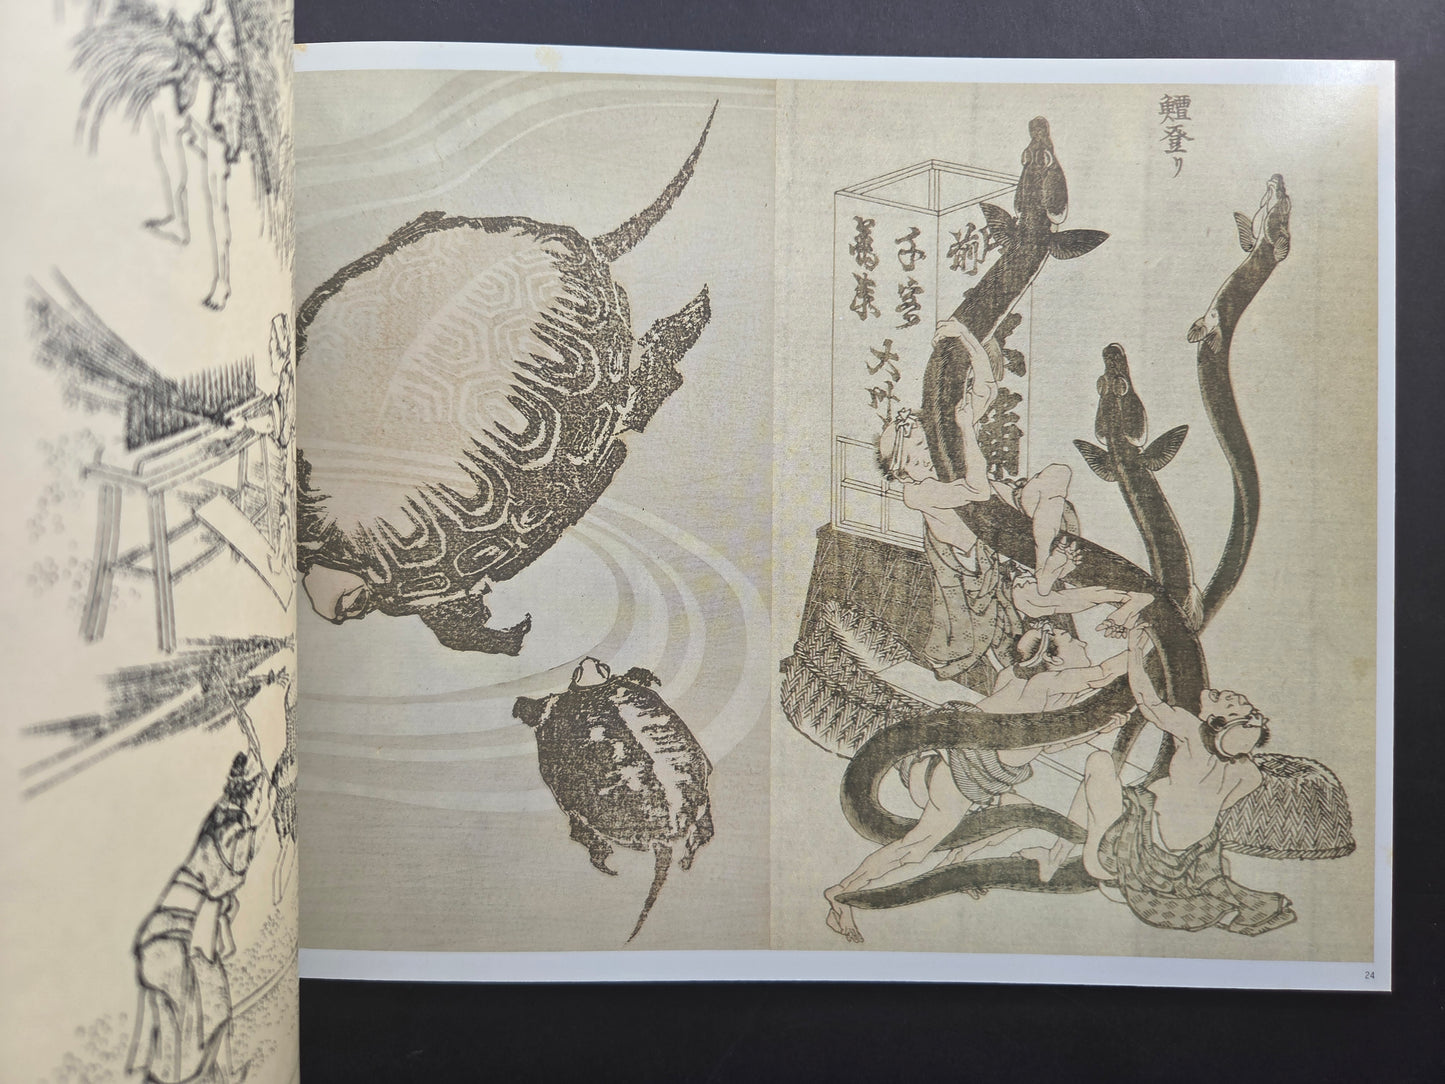 鱣登り
千客
萬來
大叶
24